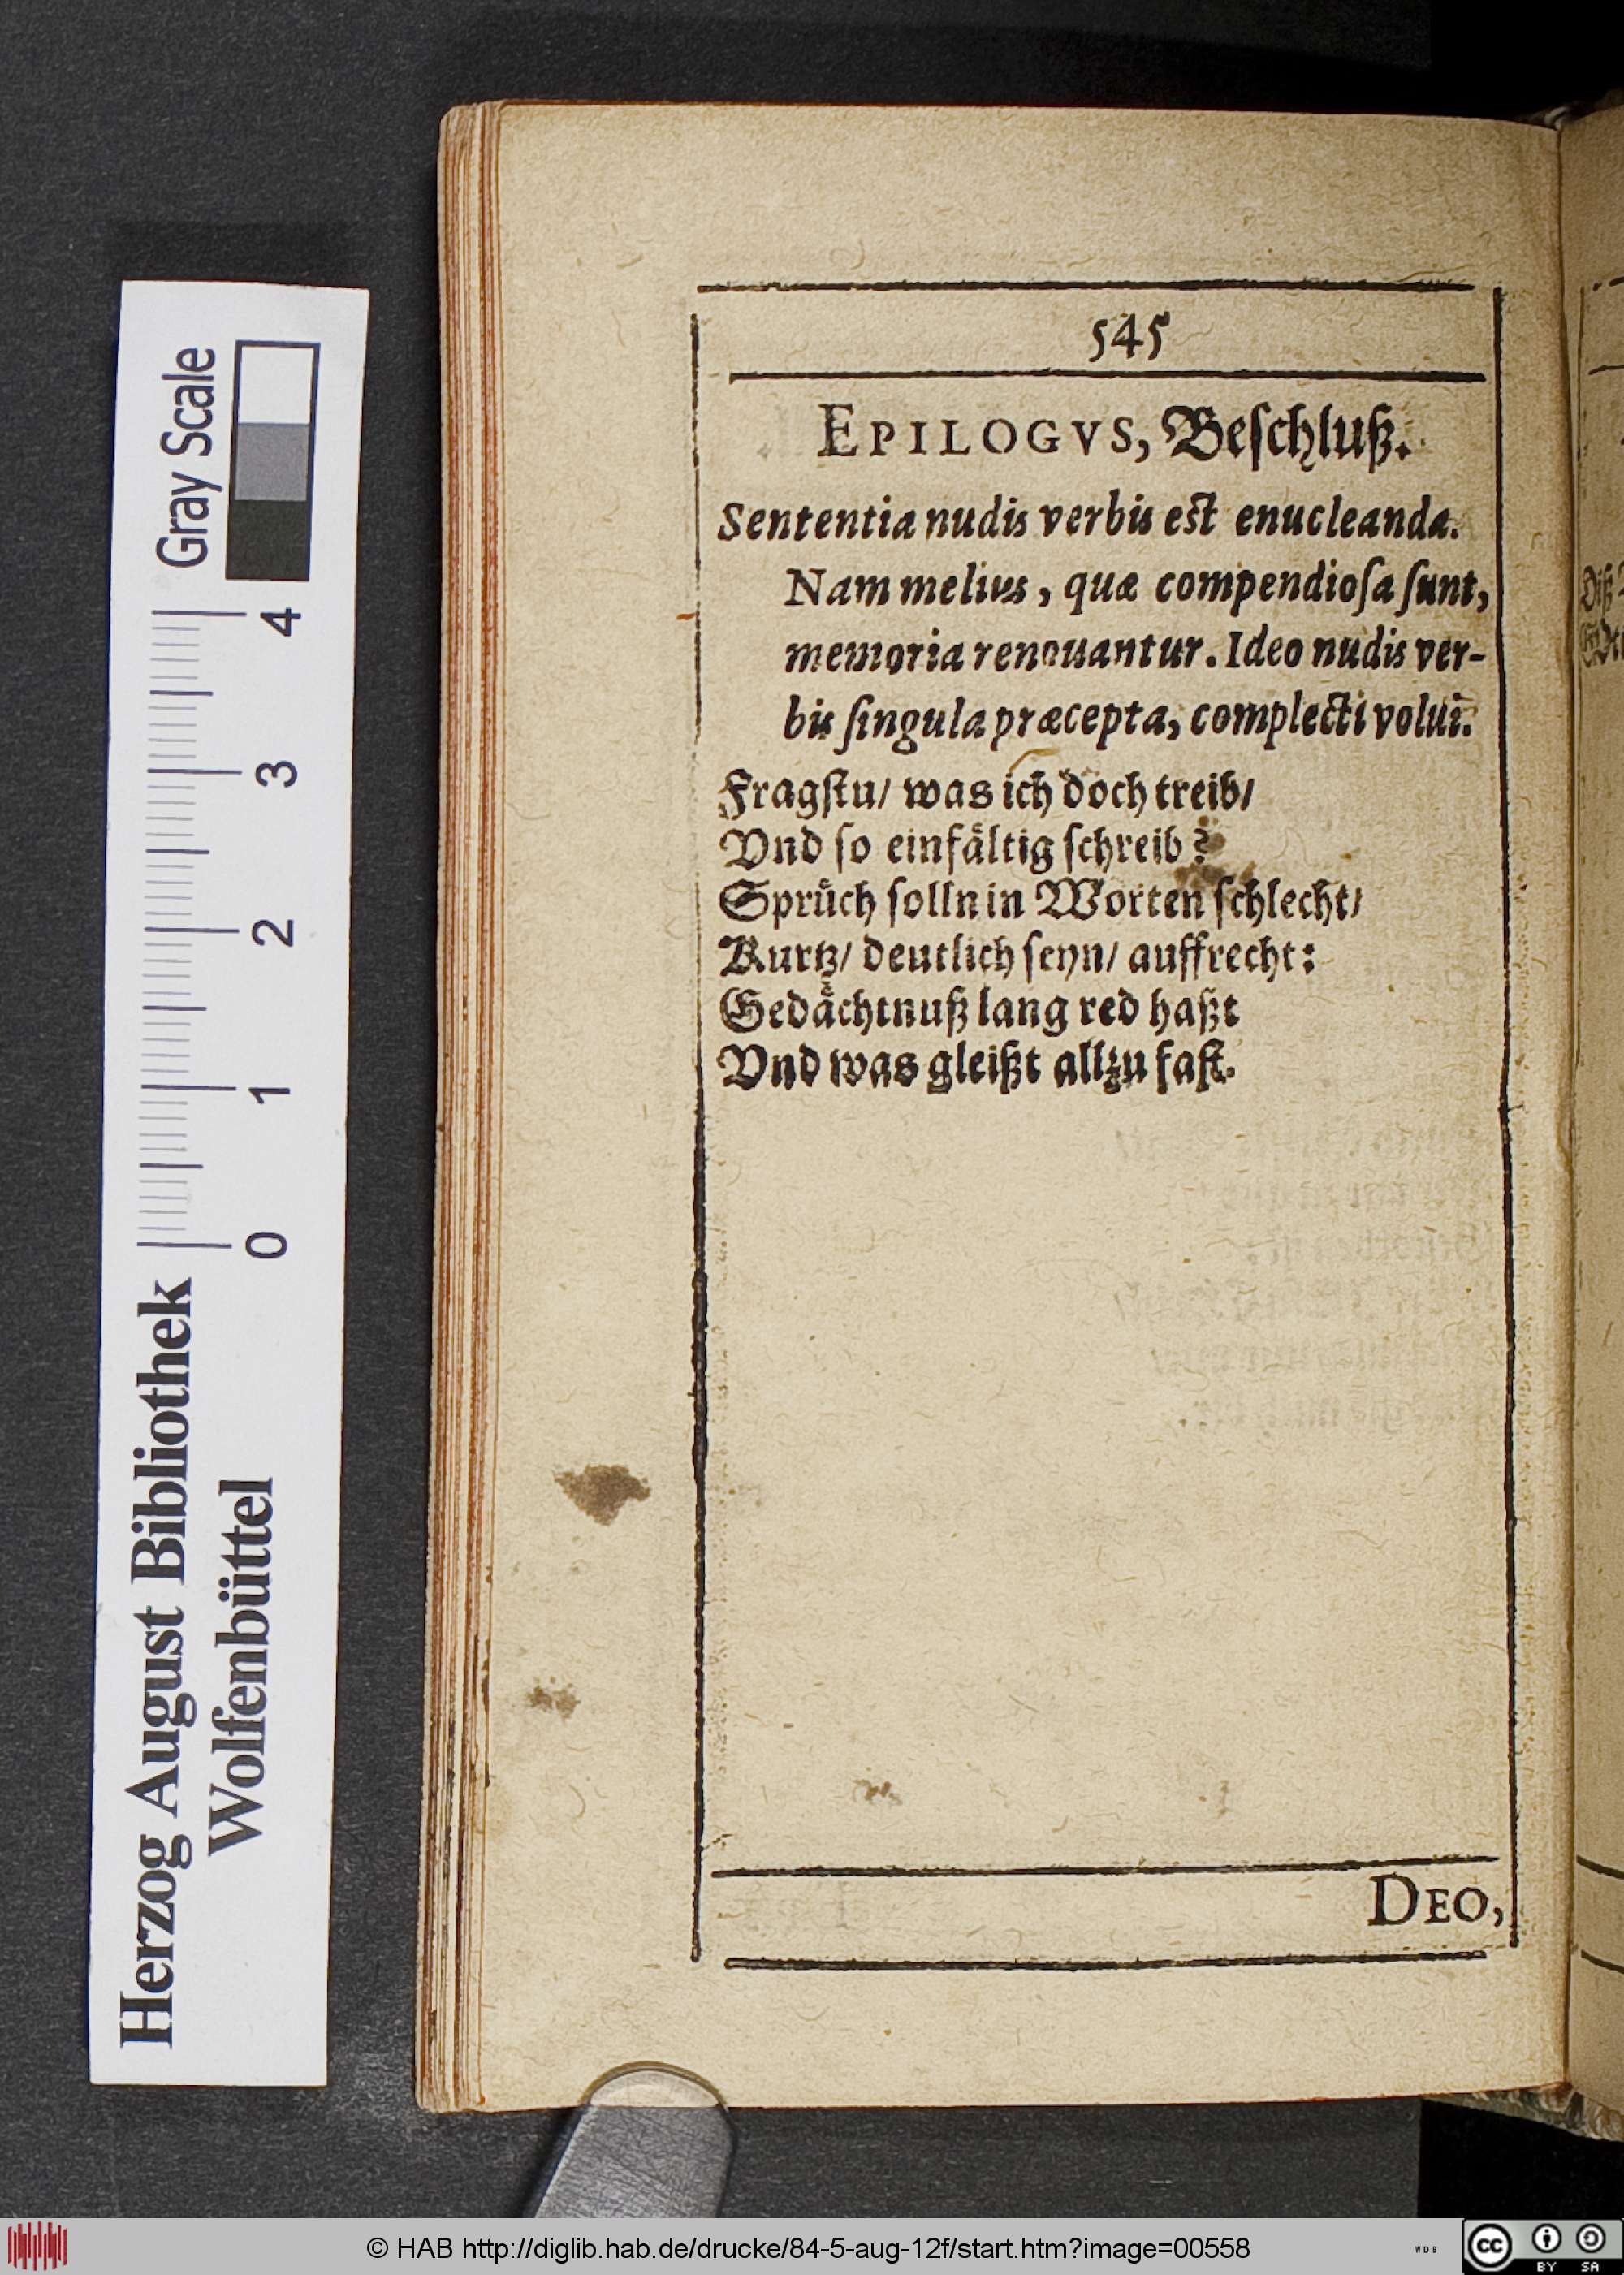 545
EPILOGVS, Beſchluß.
Sententia nudis verbis eſt enucleanda.
Nam melius, quæ compendioſa ſunt,
memoria renouantur. Ideo nudis ver-
bis ſingula præcepta, complecti volui.
Fragſtu/ was ich doch treib/
Vnd ſo einfaͤltig ſchreib?
Spruͤch ſolln in Worten ſchlecht/
Kurtz/ deutlich ſeyn/ auffrecht:
Gedaͤchtnuß lang red haßt
Vnd was gleißt allzu faſt.
DEO,
Gray Scale
4
3
2
1
0
Herzog August Bibliothek
Wolfenbüttel
© HAB http://diglib.hab.de/drucke/84-5-aug-12f/start.htm?image=00558
WDB
cc
BY SA